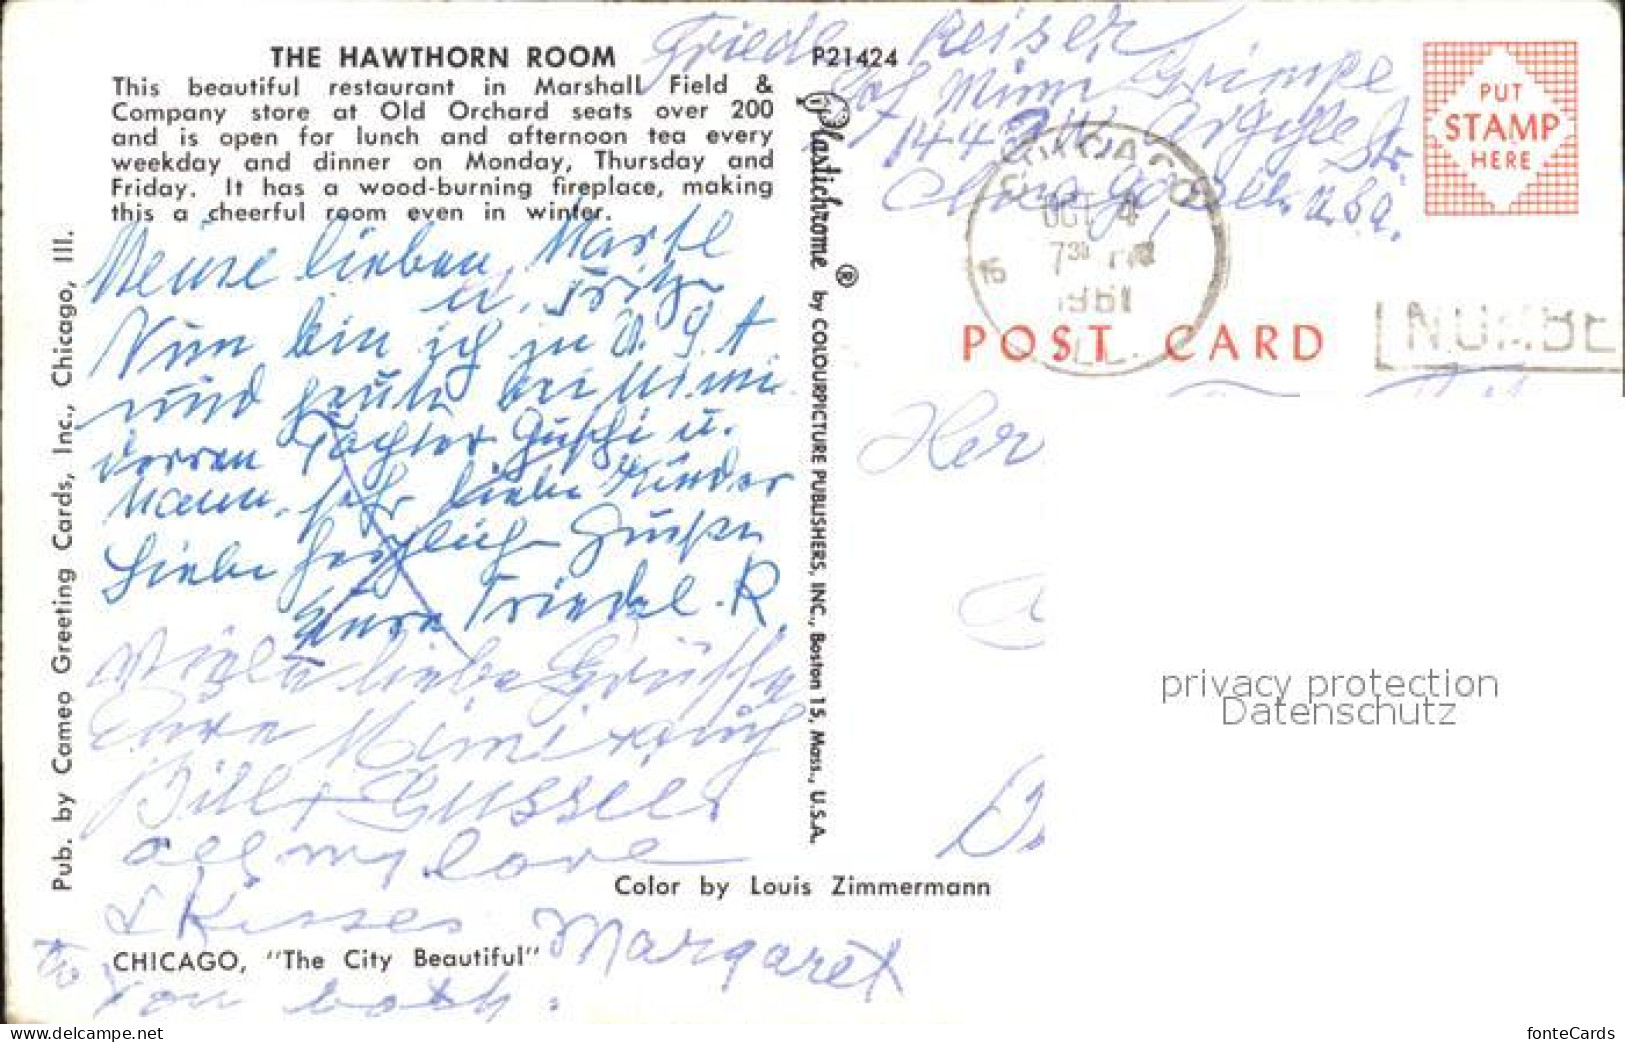 THE HAWTHORN ROOM
This beautiful restaurant in Marshall Field &
Company store at Old Orchard seats over 200
and is open for lunch and afternoon tea every
weekday and dinner on Monday, Thursday and
Friday. It has a wood-burning fireplace, making
this a cheerful room even in winter.
P21424
Meine lieben Martel
u. Fritz
Nun bin ich zu U.S.A
und heute bei Mimi
deren Tochter Guschi u.
Mann, sehr liebe Kinder
Liebe herzliche Grüße
Eure Friedel. R.
Viele liebe Grüße
Eure Mimi
Bill +
all my love
& Kisses Margaret
to you both.
CHICAGO, "The City Beautiful"
Color by Louis Zimmermann
Pub. by Cameo Greeting Cards, Inc., Chicago, Ill.
Plastichrome ® by COLOURPICTURE PUBLISHERS, INC., Boston 15, Mass., U.S.A.
Friedel Reiser
Mimi Grimpe
1442 W Argyle Str.
Chicago, Ill. USA.
PUT
STAMP
HERE
CHICAGO
OCT 4
7 30 PM
1961
15
ILL.
NUMBE
POST CARD
Her
privacy protection
Datenschutz
www.delcampe.net
fonteCards